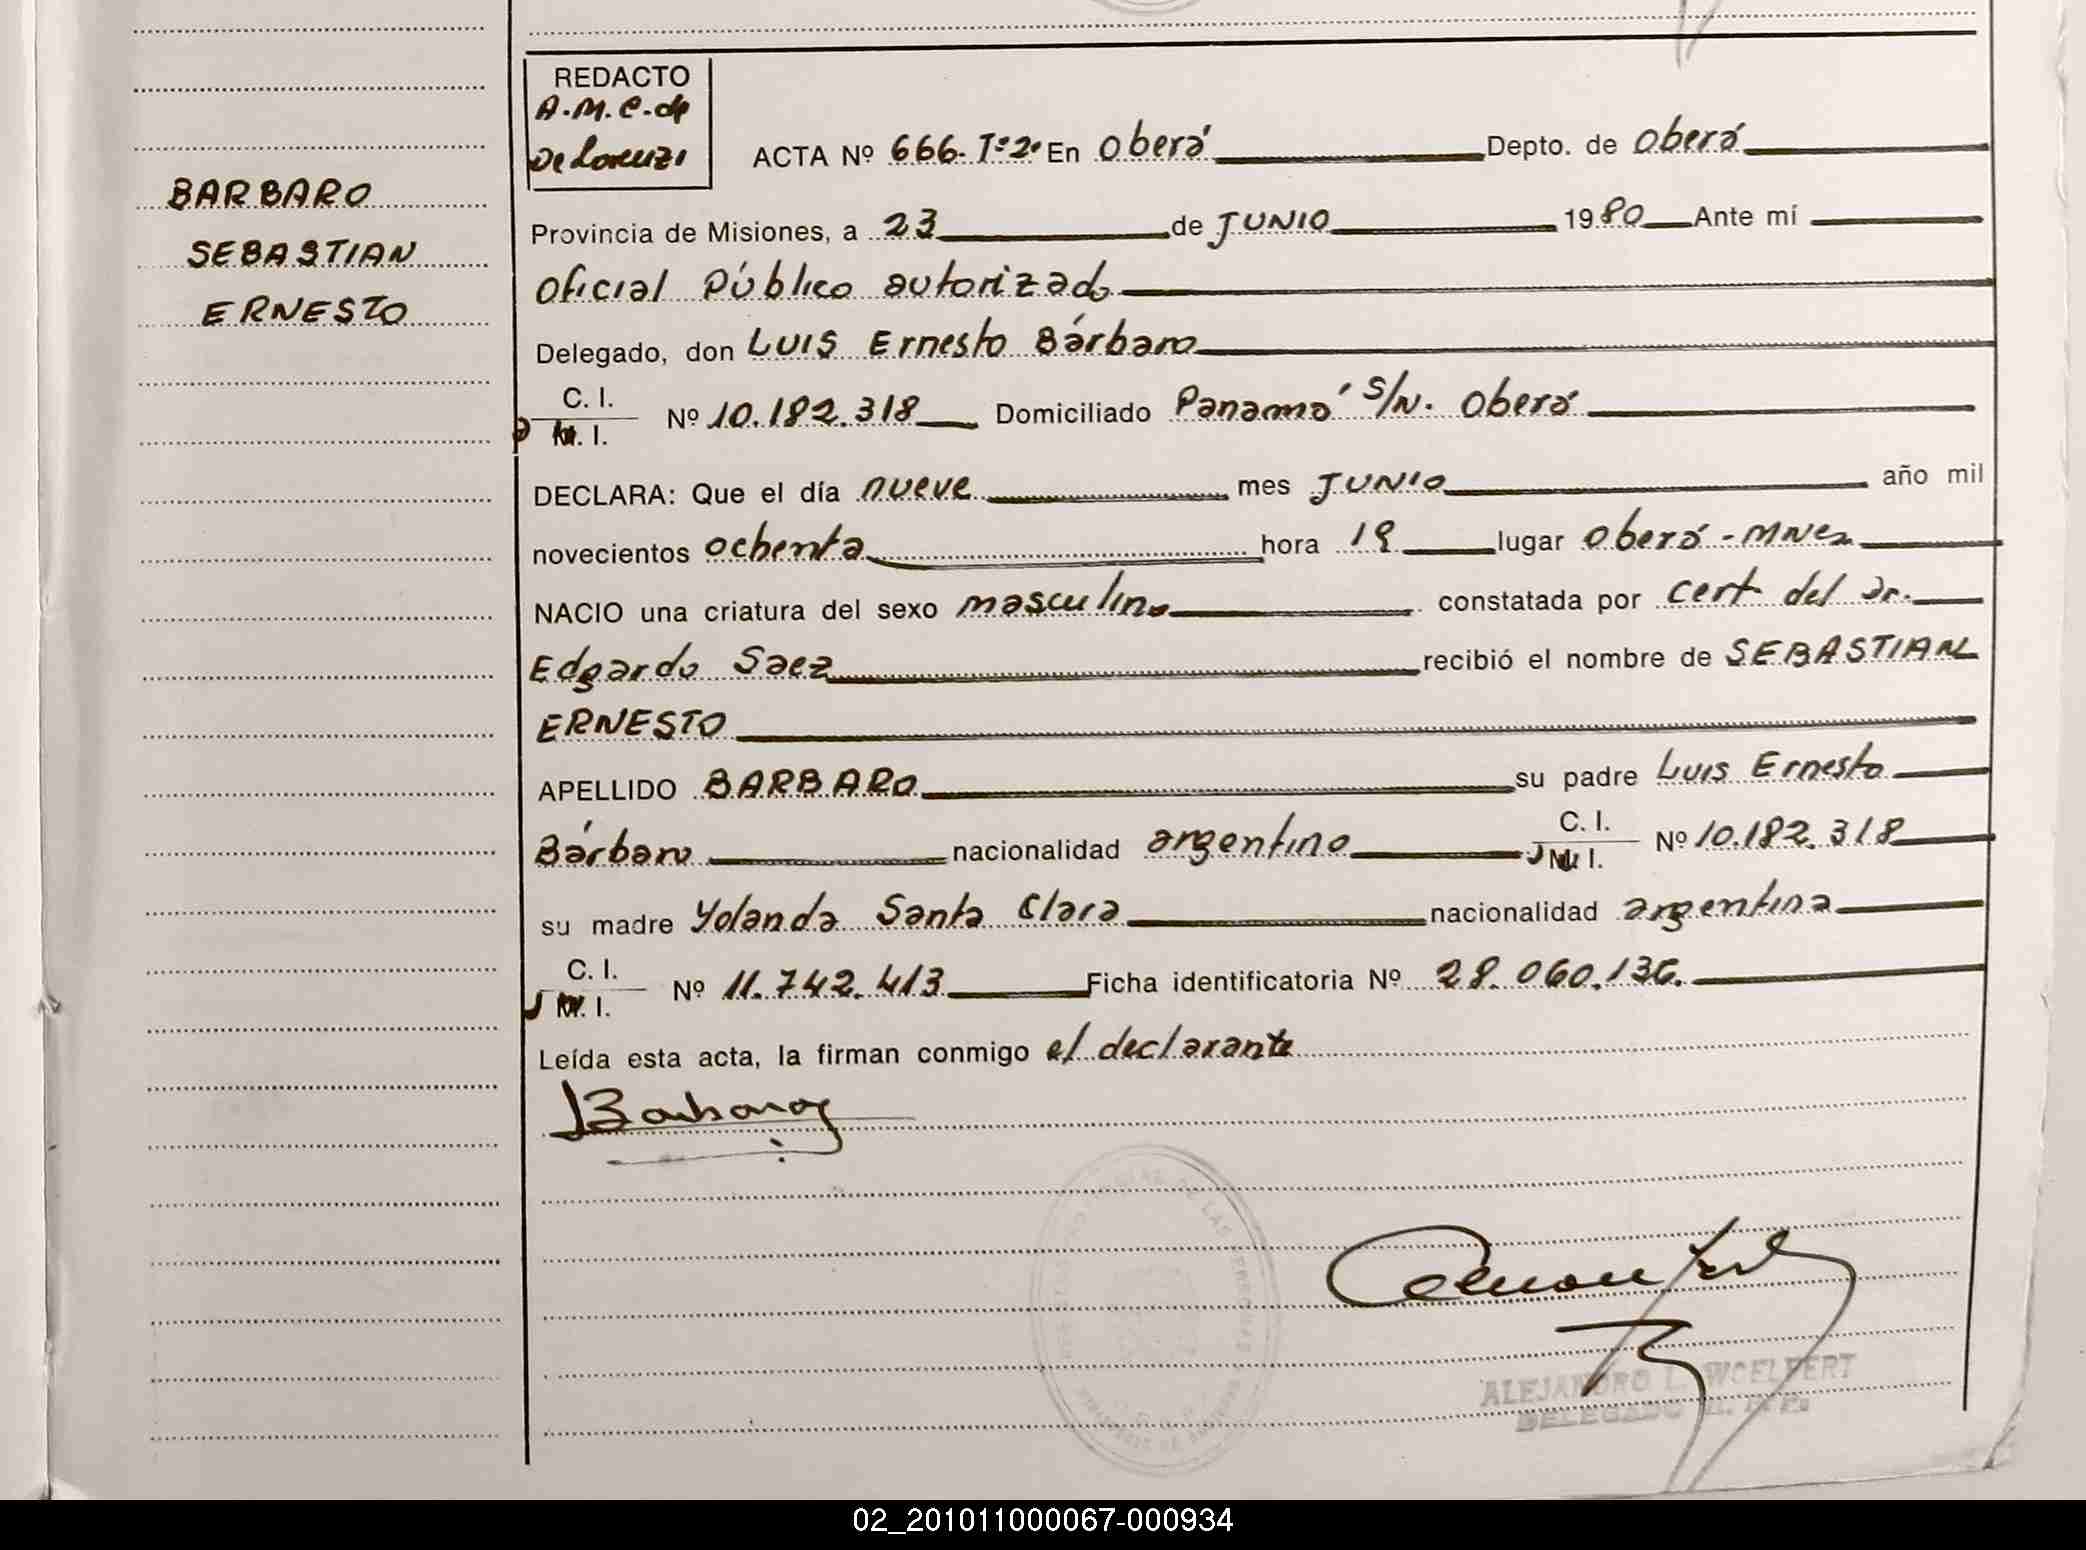 REDACTO
A.M.C. de
De Lorenzi
ACTA Nº 666. Tº2º En Oberá Depto. de Oberá
BARBARO
SEBASTIAN
ERNESTO
Provincia de Misiones, a 23 de JUNIO 1980 Ante mí
Oficial Público autorizado
Delegado, don LUIS Ernesto Bárbaro
C. I.
M. I. Nº 10.182.318 Domiciliado Panamá S/N. Oberá
DECLARA: Que el día nueve mes JUNIO año mil
novecientos ochenta hora 19 lugar Oberá - MNes
NACIO una criatura del sexo masculino constatada por cert del Dr.
Edgardo Saez recibió el nombre de SEBASTIAN
ERNESTO
APELLIDO BARBARO su padre Luis Ernesto
Bárbaro nacionalidad argentino C. I. Nº 10.182.318
su madre Yolanda Santa Clara nacionalidad argentina
C. I.
M. I. Nº 11.742.413 Ficha identificatoria Nº 28.060.136.
Leída esta acta, la firman conmigo el declarante
ALEJANDRO L. WOELFERT
DELEGADO
02_201011000067-000934